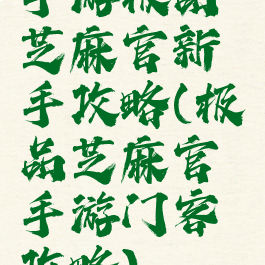 手游极品
芝麻官新
手攻略(极
品芝麻官
手游门客
攻略)